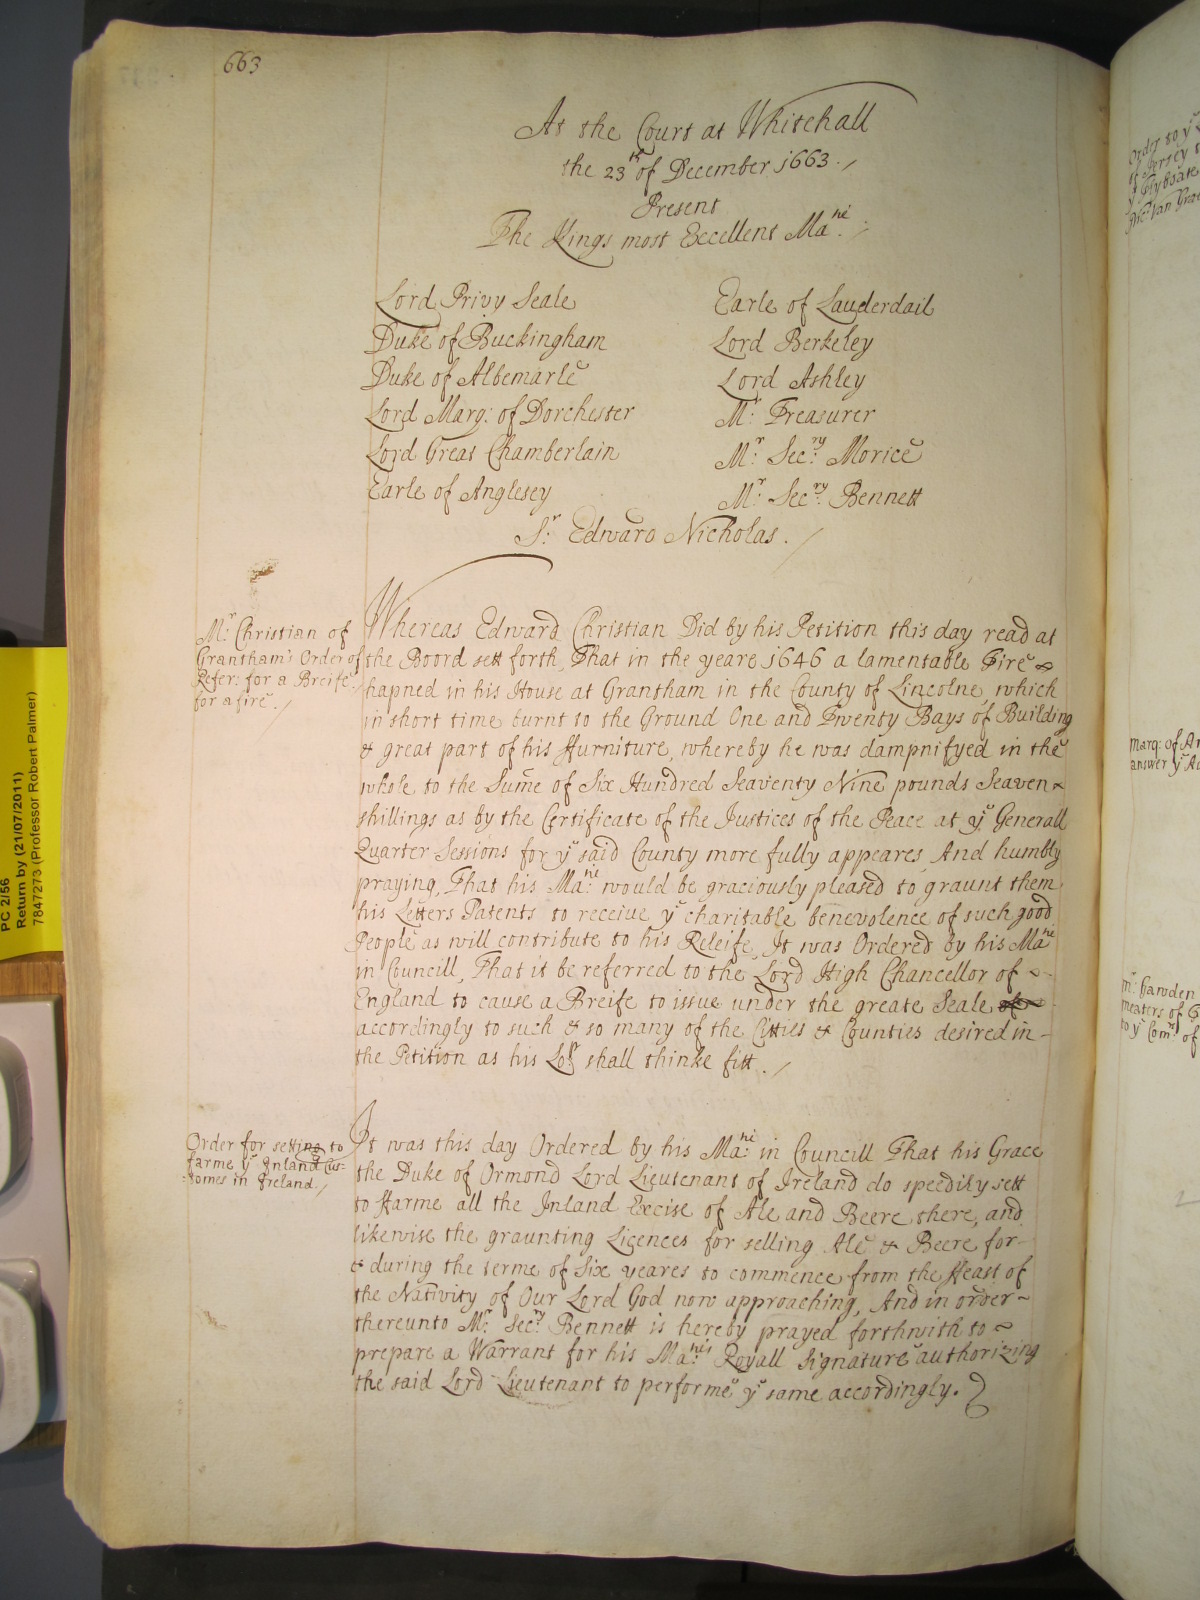 663
At the Court at Whitehall
the 23th of December 1663.
Present
The Kings most Excellent Matie:
Lord Privy Seale
Duke of Buckingham
Duke of Albemarle
Lord Marq: of Dorchester
Lord Great Chamberlain
Earle of Anglesey
Earle of Lauderdail
Lord Berkeley
Lord Ashley
Mr: Treasurer
Mr: Secry: Morice
Mr: Secry: Bennett
Sr: Edward Nicholas.
Mr: Christian of
Grantham's Order of
Refer: for a Breife
for a fire.
Whereas Edward Christian Did by his Petition this day read at
the Boord sett forth, That in the yeare 1646 a lamentable Fire
hapned in his House at Grantham in the County of Lincolne, which
in short time burnt to the Ground One and Twenty Bays of Building
& great part of his ffurniture, whereby he was dampnifyed in the
whole to the Sume of Six Hundred Seaventy Nine pounds Seaven
shillings as by the Certificate of the Justices of the Peace at ye Generall
Quarter Sessions for ye said County more fully appeares, And humbly
praying, That his Matie: would be graciously pleased to graunt them
his Letters Patents to receive ye charitable benevolence of such good
People as will contribute to his Releife, It was Ordered by his Matie
in Councill, That it be referred to the Lord High Chancellor of
England to cause a Breife to issue under the greate Seale of
accordingly to such & so many of the Citties & Counties desired in
the Petition as his Lopp shall thinke fitt.
Order for setting to
farme ye Inland Cus-
-tomes in Ireland
It was this day Ordered by his Matie: in Councill That his Grace
the Duke of Ormond Lord Lieutenant of Ireland do speedily sett
to ffarme all the Inland Excise of Ale and Beere there, and
likewise the graunting Licences for selling Ale & Beere for
& during the terme of Six yeares to commence from the ffeast of
the Nativity of Our Lord God now approaching, And in order
thereunto Mr: Secry: Bennett is hereby prayed forthwith to
prepare a Warrant for his Maties: Royall Signature authorizing
the said Lord Lieutenant to performe ye same accordingly.
PC 2/56
Return by (21/07/2011)
7847273 (Professor Robert Palmer)
Order to ye
of Jersey
Marq: of
answer ye
Mr: Hawden
to ye Comrs of